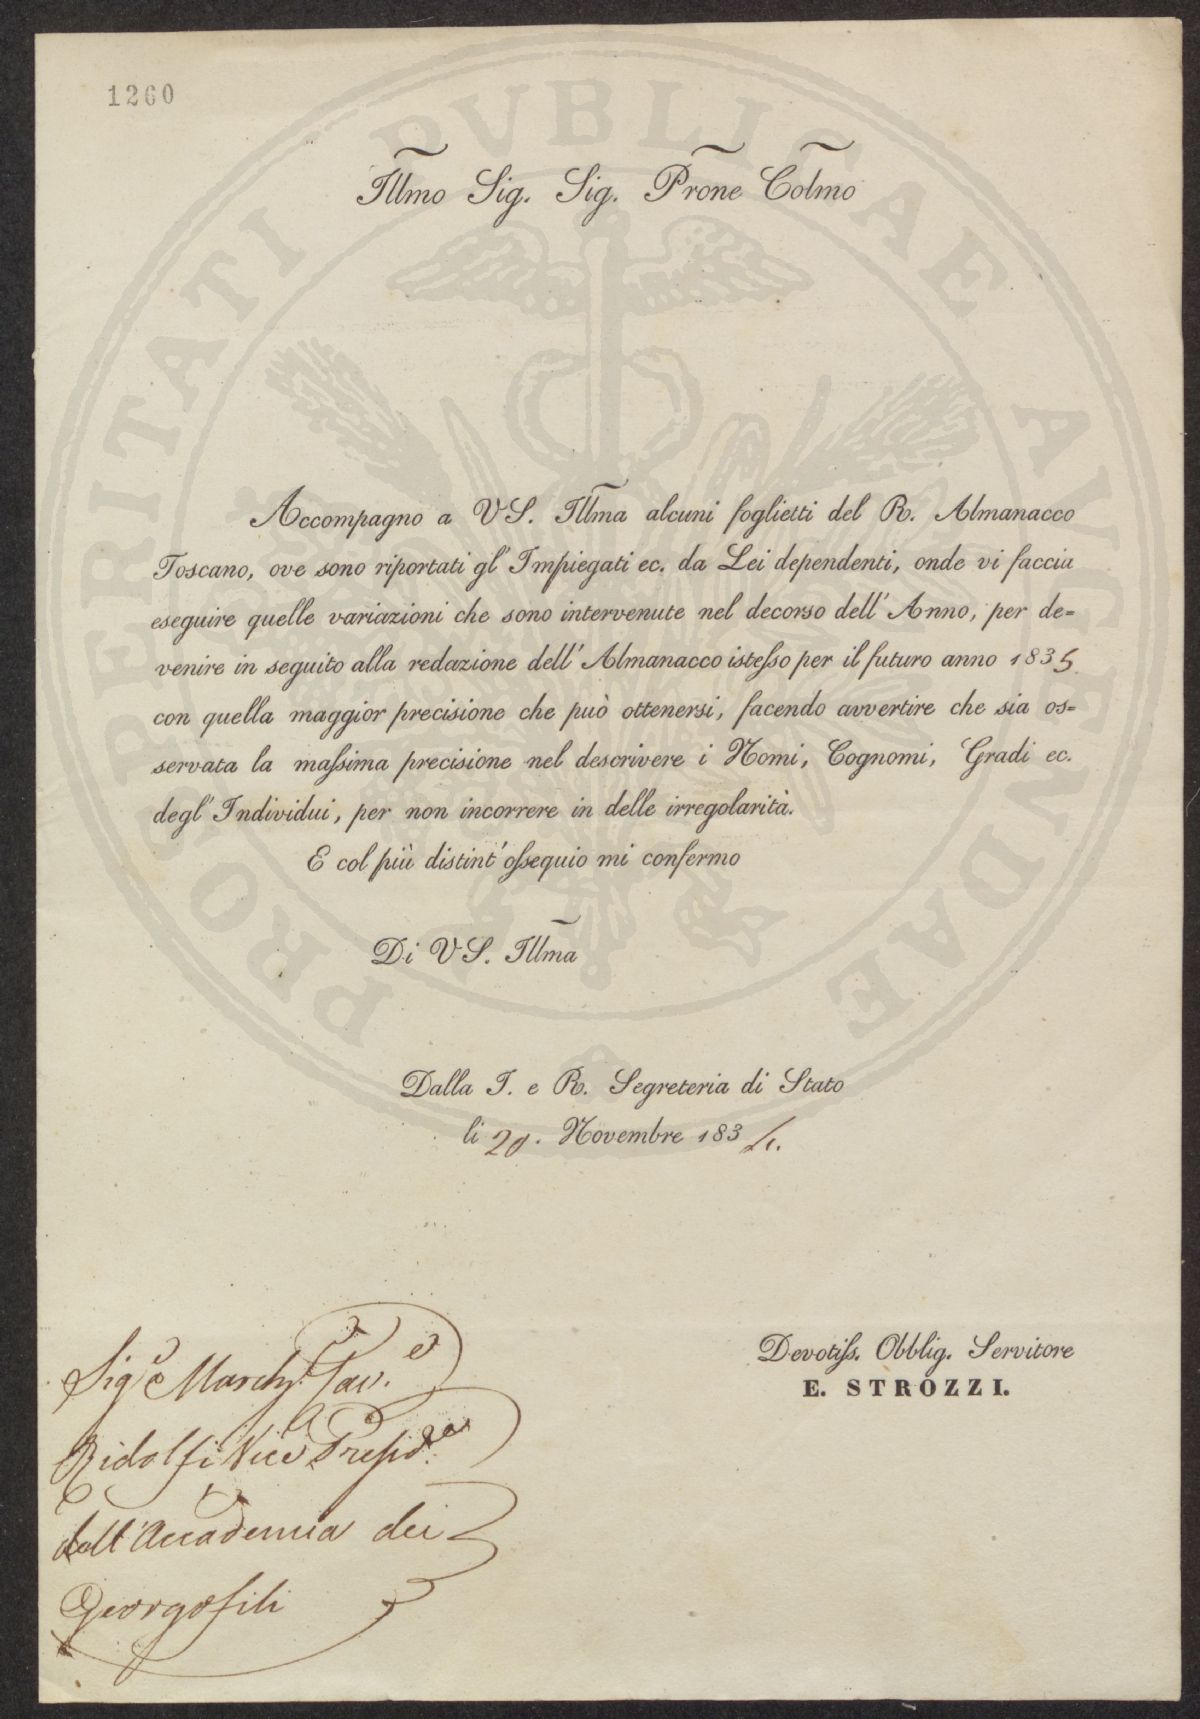 1260
Illmo Sig. Sig. Prone Colmo
Accompagno a VS. Illma alcuni foglietti del R. Almanacco
Toscano, ove sono riportati gl' Impiegati ec. da Lei dependenti, onde vi faccia
eseguire quelle variazioni che sono intervenute nel decorso dell' Anno, per de=
venire in seguito alla redazione dell' Almanacco istesso per il futuro anno 1835
con quella maggior precisione che può ottenersi, facendo avvertire che sia os=
servata la massima precisione nel descrivere i Nomi, Cognomi, Gradi ec.
degl' Individui, per non incorrere in delle irregolarità.
E col più distint' ossequio mi confermo
Di VS. Illma
Dalla I. e R. Segreteria di Stato
li 20. Novembre 1834.
Devotiss. Obblig. Servitore
E. STROZZI.
Sigre March. Cav.e
Ridolfi Vice Presid.e
dell'Accademia dei
Georgofili
PROSPERITATI PVBLICAE AVGENDAE